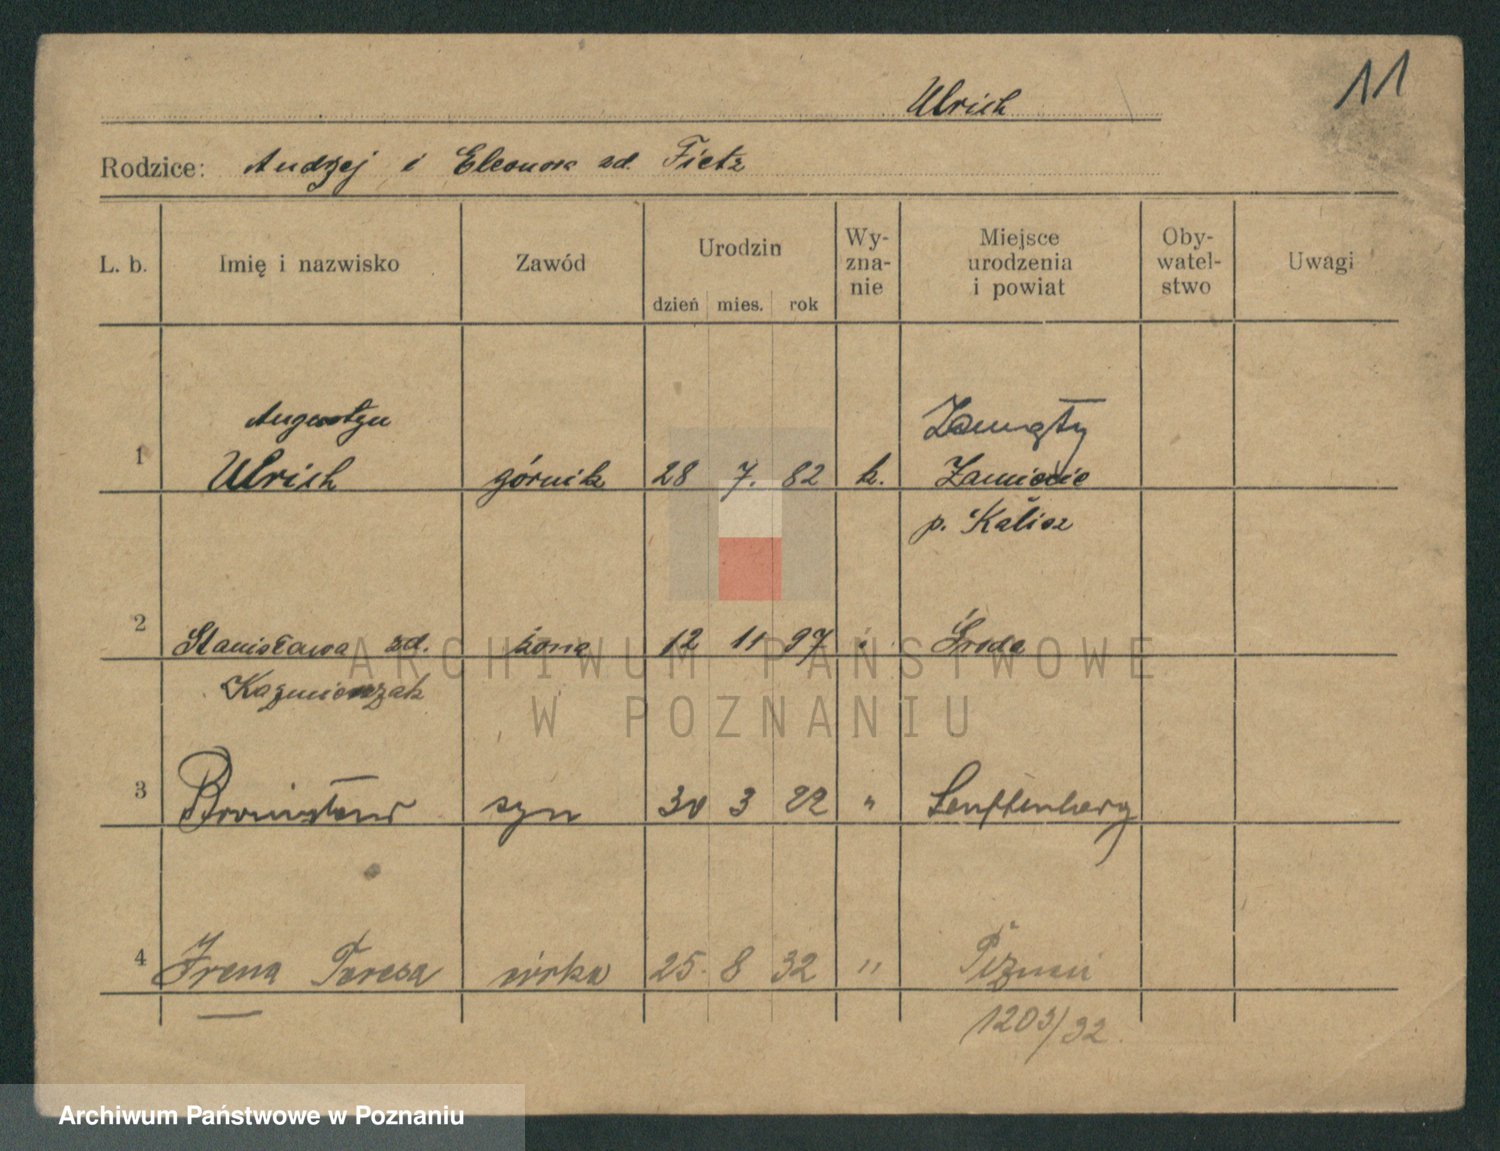 11
Ulrich
Rodzice: Andrzej i Eleonora zd. Fietz
L. b. Imię i nazwisko Zawód Urodzin dzień mies. rok Wy-zna-nie Miejsce urodzenia i powiat Oby-watel-stwo Uwagi
Augustyn
1 Ulrich górnik 28 7. 82 k.
p. Kalisz
2 Stanisława zd. żona 12 11 97 " Środa
Kaźmierczak
3 Bronisław syn 30 3 22 " Senftenberg
4 Irena Teresa córka 25. 8 32 " Poznań
1203/32.
ARCHIWUM PAŃSTWOWE
W POZNANIU
Archiwum Państwowe w Poznaniu